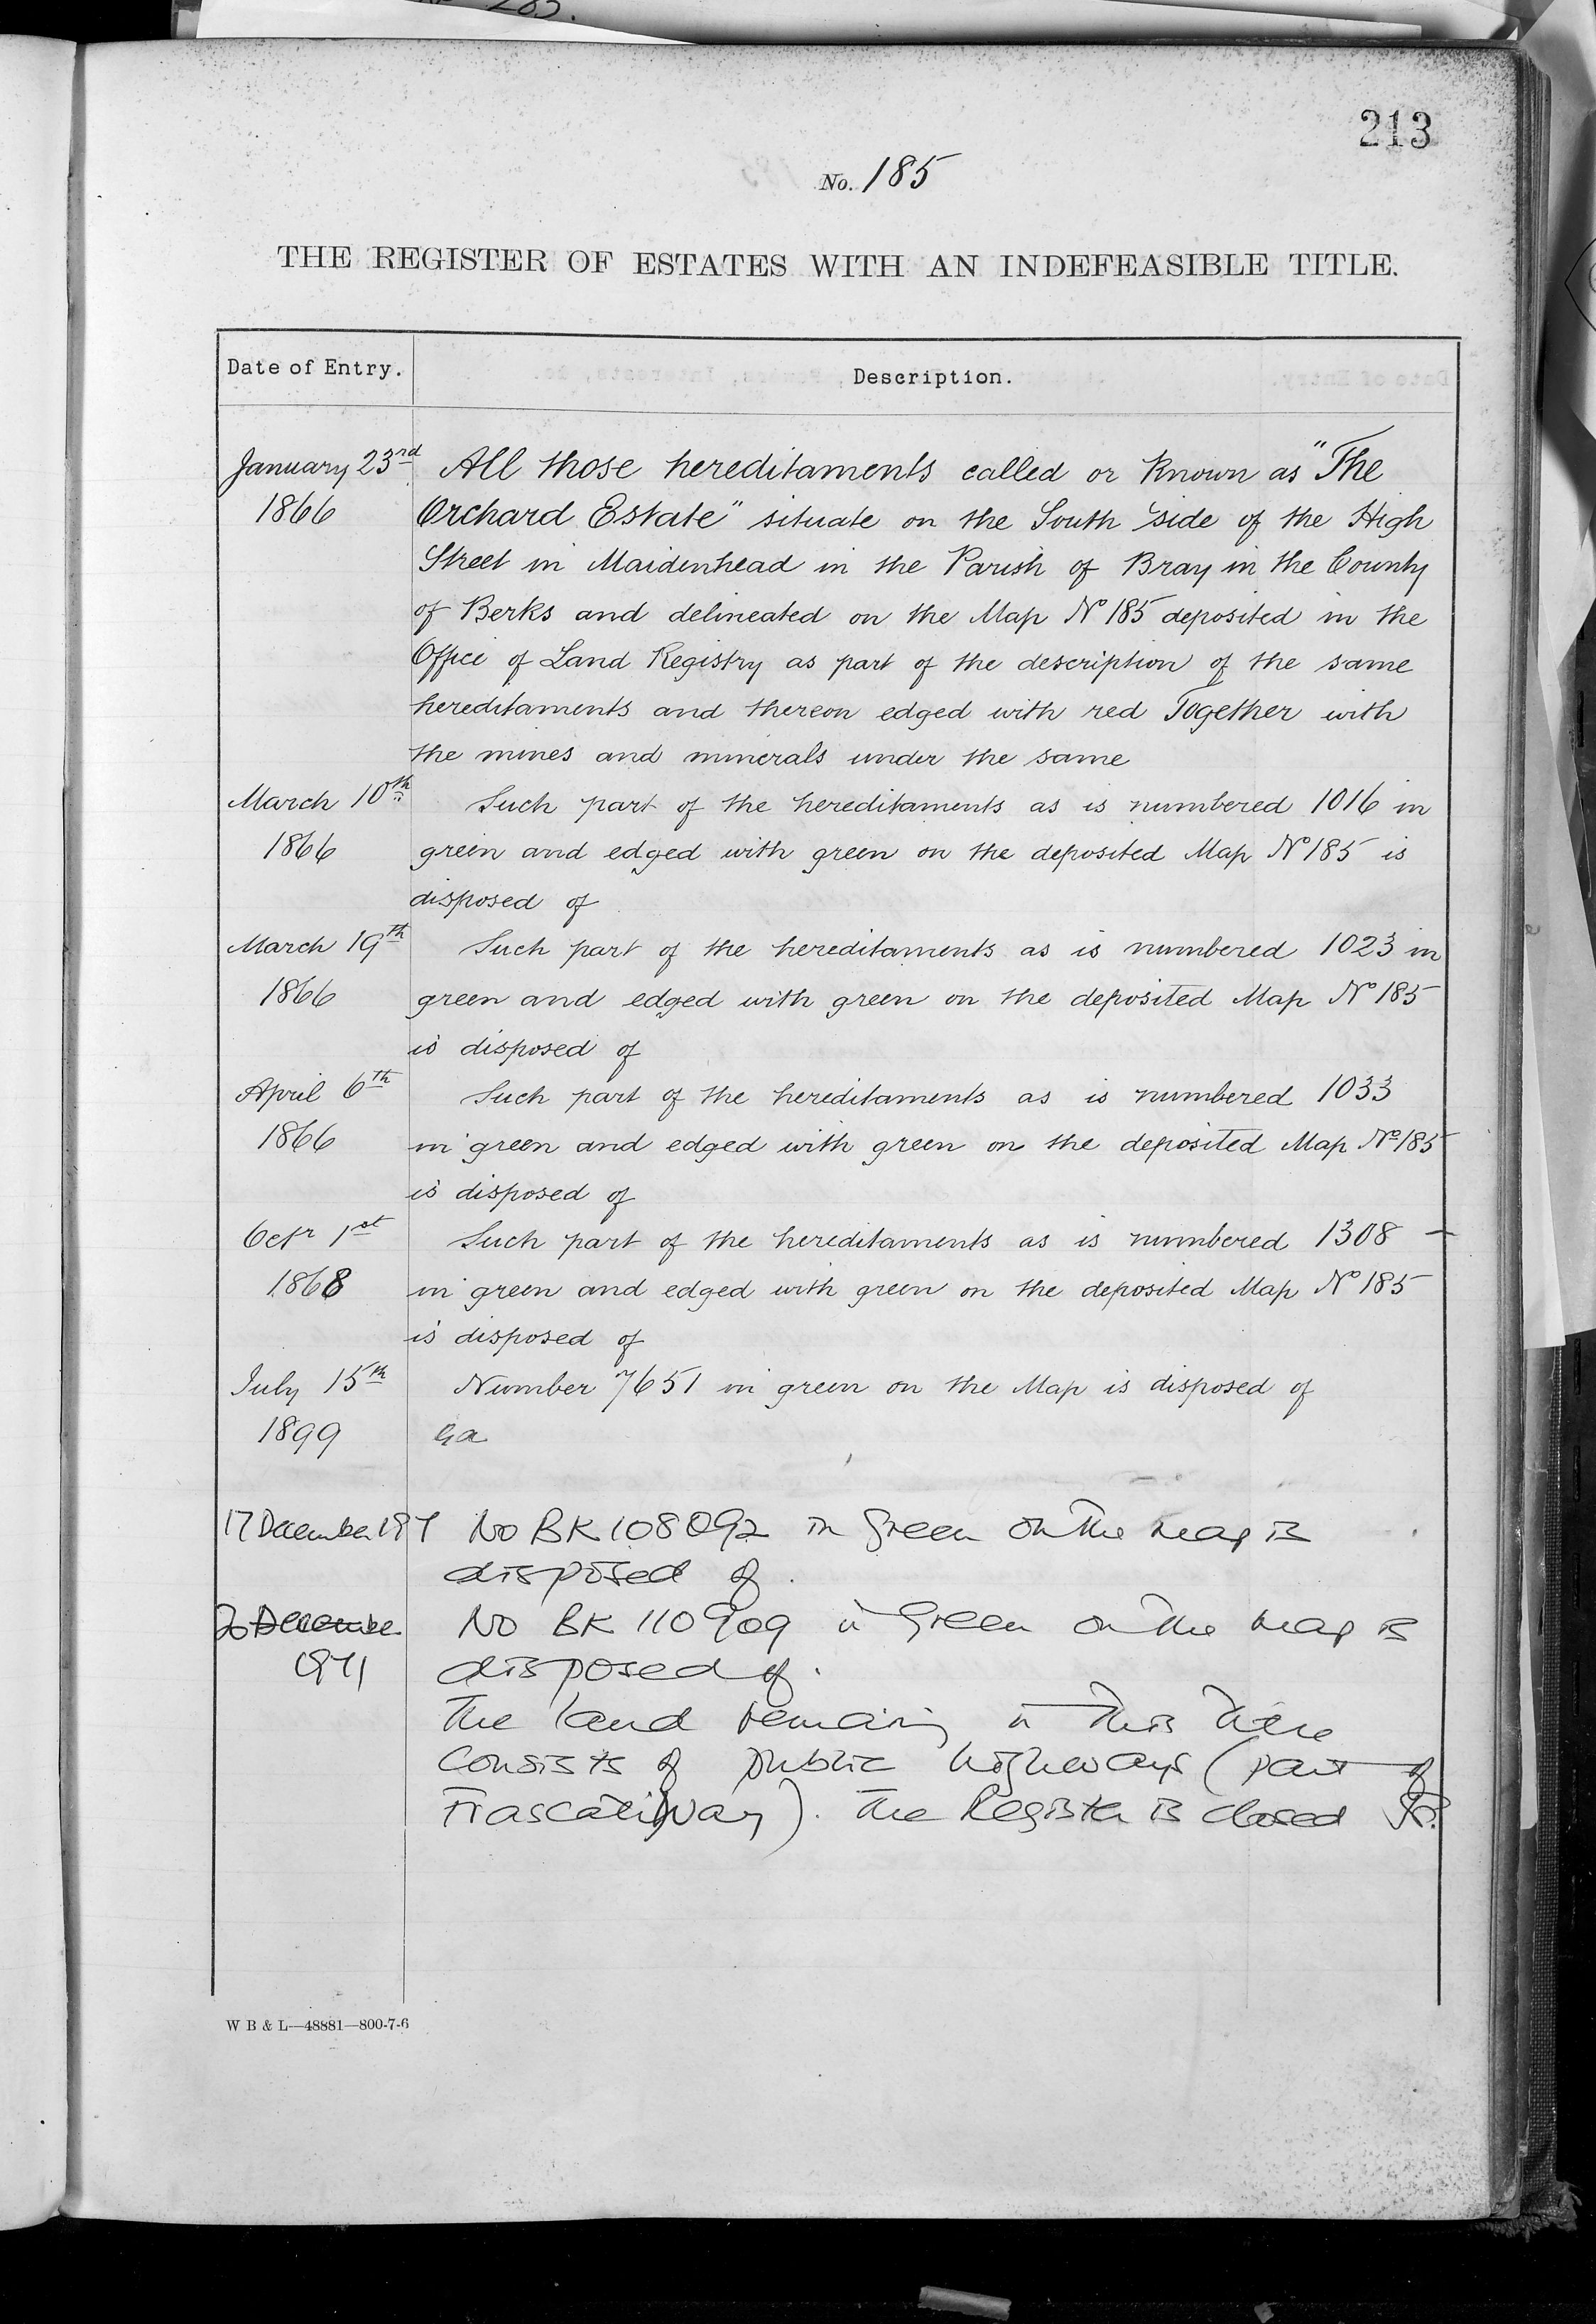 213
No. 185
THE REGISTER OF ESTATES WITH AN INDEFEASIBLE TITLE.
Date of Entry.
Description.
January 23rd
1866
All those hereditaments called or known as "The
Orchard Estate" situate on the South side of the High
Street in Maidenhead in the Parish of Bray in the County
of Berks and delineated on the Map No 185 deposited in the
Office of Land Registry as part of the description of the same
hereditaments and thereon edged with red Together with
the mines and minerals under the same
March 10th
1866
Such part of the hereditaments as is numbered 1016 in
green and edged with green on the deposited Map No 185 is
disposed of
March 19th
1866
Such part of the hereditaments as is numbered 1023 in
green and edged with green on the deposited Map No 185
is disposed of
April 6th
1866
Such part of the hereditaments as is numbered 1033
in green and edged with green on the deposited Map No 185
is disposed of
Octr 1st
1868
Such part of the hereditaments as is numbered 1308
in green and edged with green on the deposited Map No 185
is disposed of
July 15th
1899
Number 7651 in green on the Map is disposed of
17 December
No BK 108092 in green on the map is
disposed of.
20 December
1971
No BK 110909 in green on the map is
disposed of.
The land remaining in this title
consists of public highways (part of
Frascati Way). The Register is closed
W B & L—48881—800-7-6